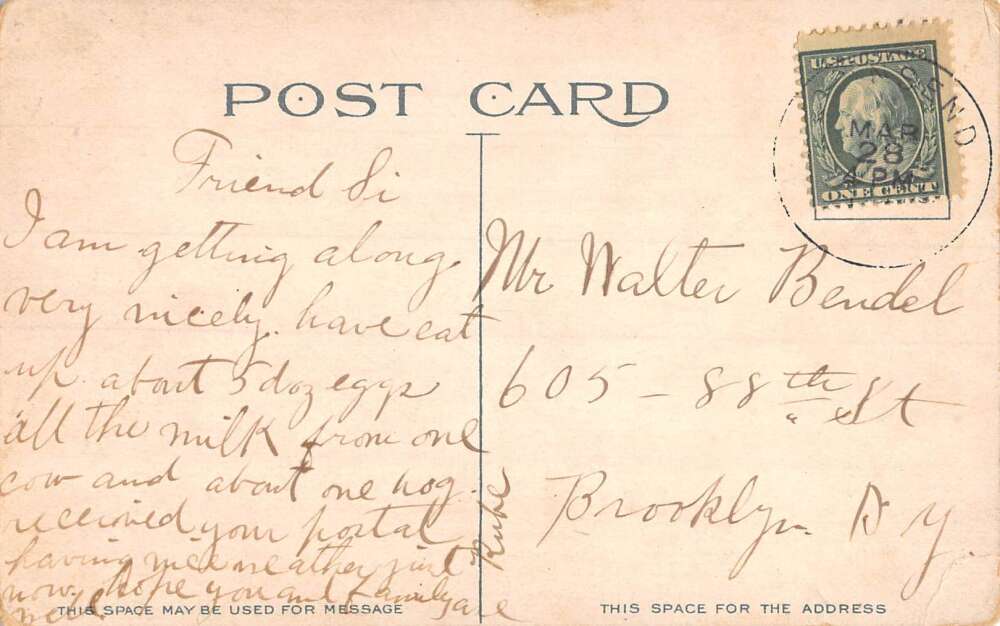 POST CARD
U.S. POSTAGE
END
MAR
28
4 PM
ONE CENT
Friend Si
I am getting along
very nicely. have eat
up about 5 doz eggs
all the milk from one
cow and about one hog.
received your postal
having nice weather just
now. hope you and family are
well.
Rube
Mr Walter Bendel
605 - 88th St
Brooklyn N Y.
THIS SPACE MAY BE USED FOR MESSAGE
THIS SPACE FOR THE ADDRESS